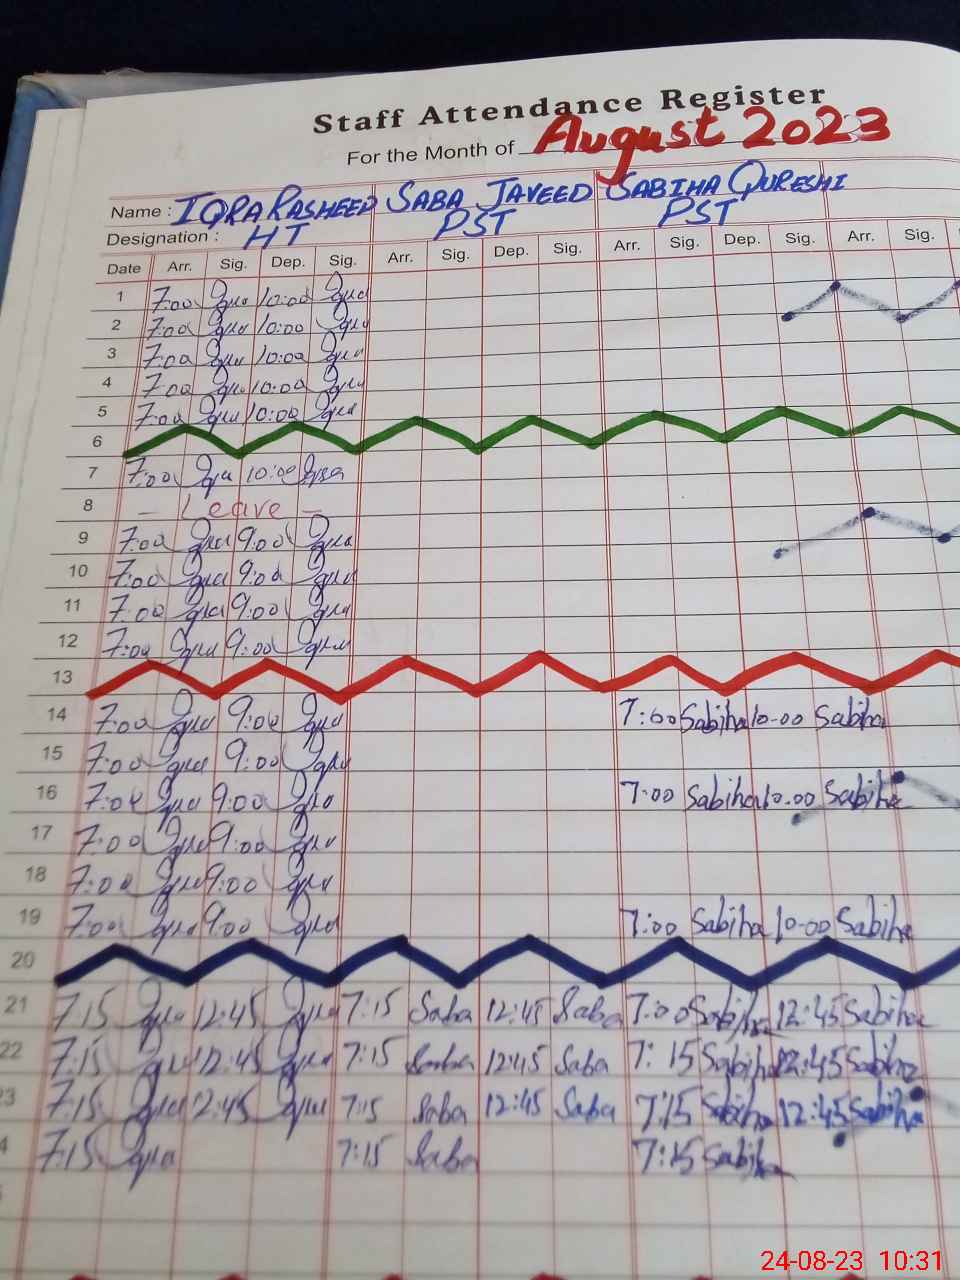 Staff Attendance Register
For the Month of August 2023
Name : IQRA RASHEED SABA JAVEED SABIHA QURESHI
Designation : HT PST PST
Date Arr. Sig. Dep. Sig. Arr. Sig. Dep. Sig. Arr. Sig. Dep. Sig. Arr. Sig.
1 7:00 Iqra 10:00 Iqra
2 7:00 Iqra 10:00 Iqra
3 7:00 Iqra 10:00 Iqra
4 7:00 Iqra 10:00 Iqra
5 7:00 Iqra 10:00 Iqra
6
7 7:00 Iqra 10:00 Iqra
8 - Leave -
9 7:00 Iqra 9:00 Iqra
10 7:00 Iqra 9:00 Iqra
11 7:00 Iqra 9:00 Iqra
12 7:00 Iqra 9:00 Iqra
13
14 7:00 Iqra 9:00 Iqra 7:00 Sabiha 10-00 Sabiha
15 7:00 Iqra 9:00 Iqra
16 7:00 Iqra 9:00 Iqra 7:00 Sabiha 10.00 Sabiha
17 7:00 Iqra 9:00 Iqra
18 7:00 Iqra 9:00 Iqra
19 7:00 Iqra 9:00 Iqra 7:00 Sabiha 10-00 Sabiha
20
21 7:15 Iqra 12:45 Iqra 7:15 Saba 12:45 Saba 7:00 Sabiha 12:45 Sabiha
22 7:15 Iqra 12:45 Iqra 7:15 Saba 12:45 Saba 7:15 Sabiha 12:45 Sabiha
3 7:15 Iqra 12:45 Iqra 7:15 Saba 12:45 Saba 7:15 Sabiha 12:45 Sabiha
4 7:15 Iqra 7:15 Saba 7:15 Sabiha
24-08-23 10:31